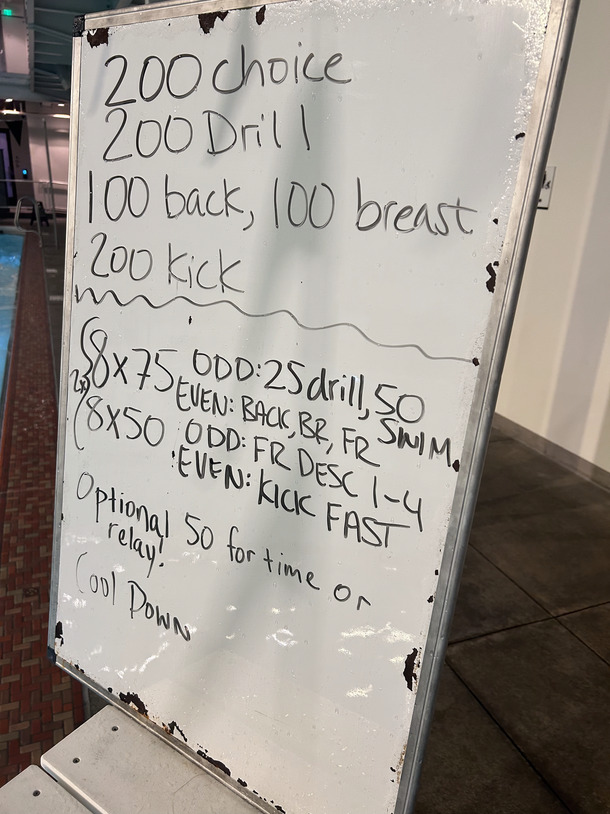 200 choice
200 Drill
100 back, 100 breast
200 kick
2x
8x75 ODD: 25 drill, 50 SWIM
EVEN: BACK, BR, FR
8x50 ODD: FR DESC 1-4
EVEN: KICK FAST
Optional 50 for time or
relay!
Cool Down